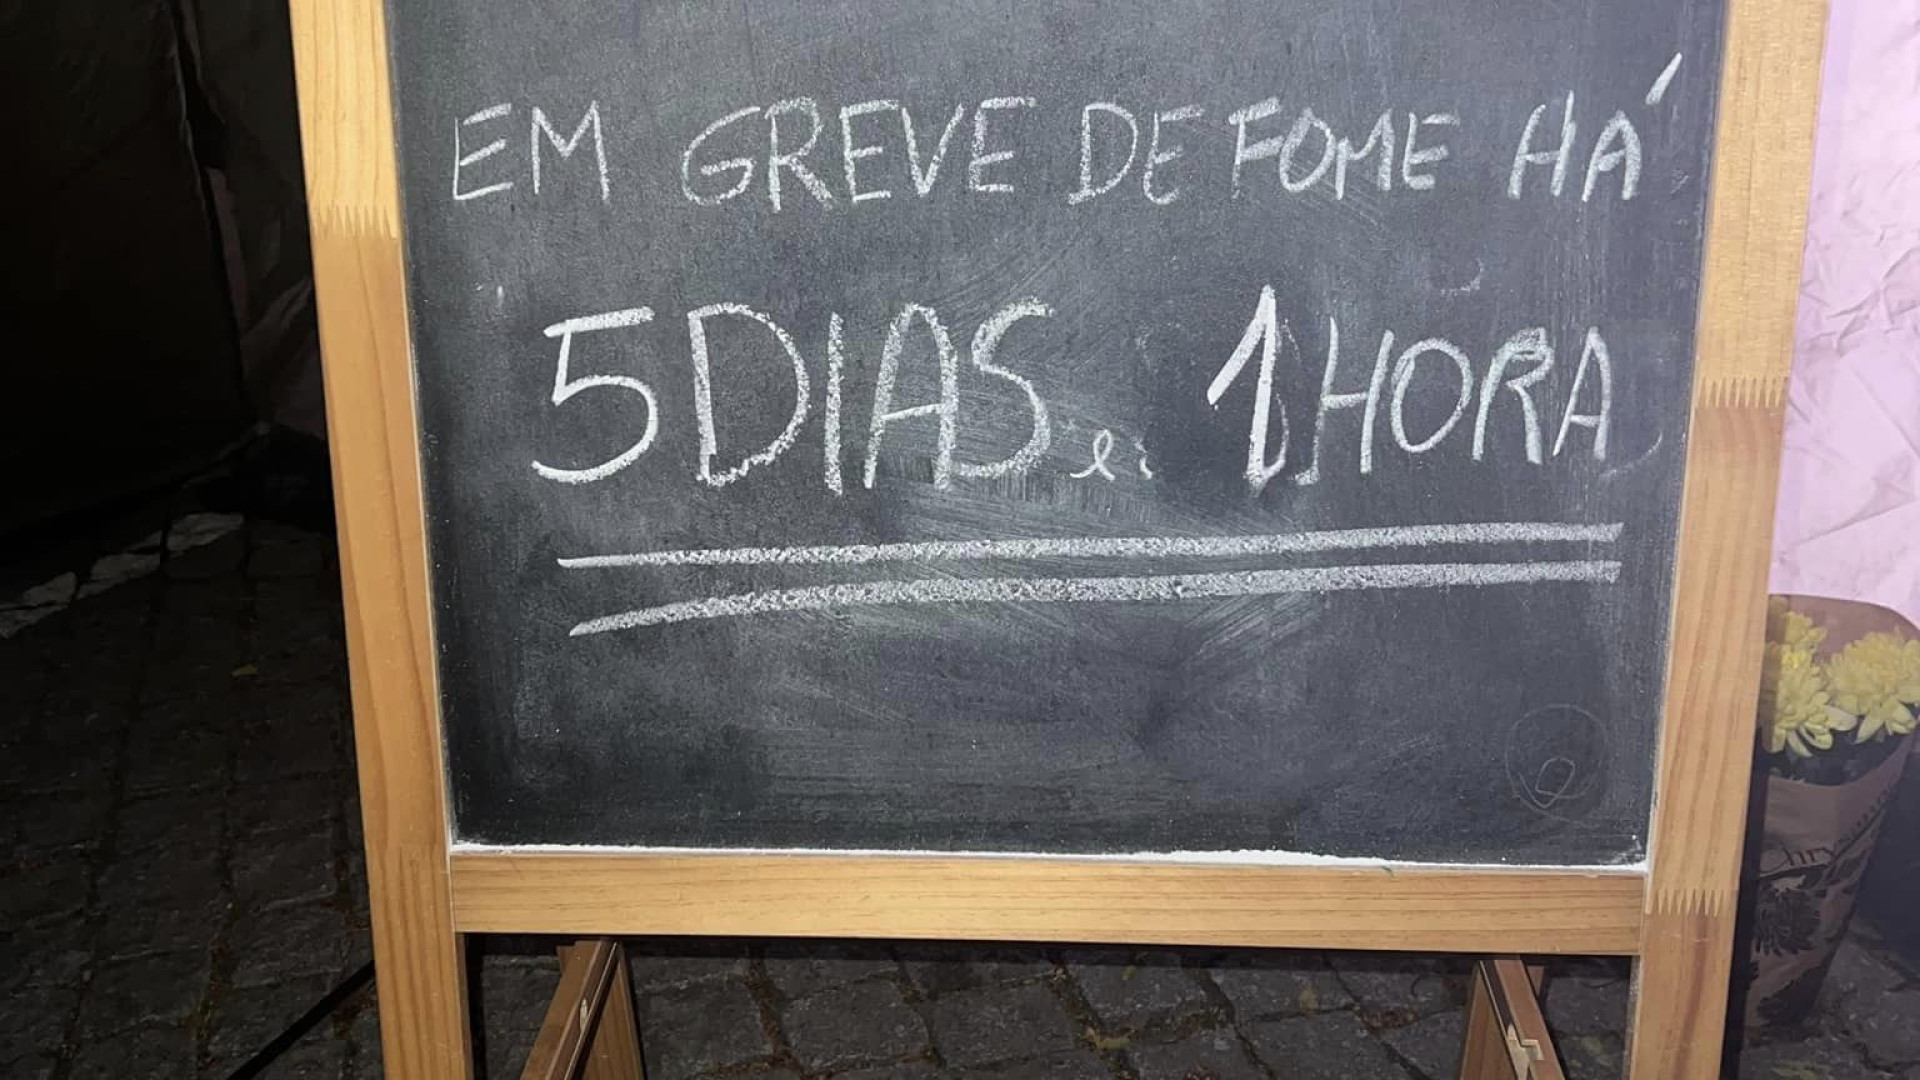 EM GREVE DE FOME HÁ
5 DIAS e 1 HORA